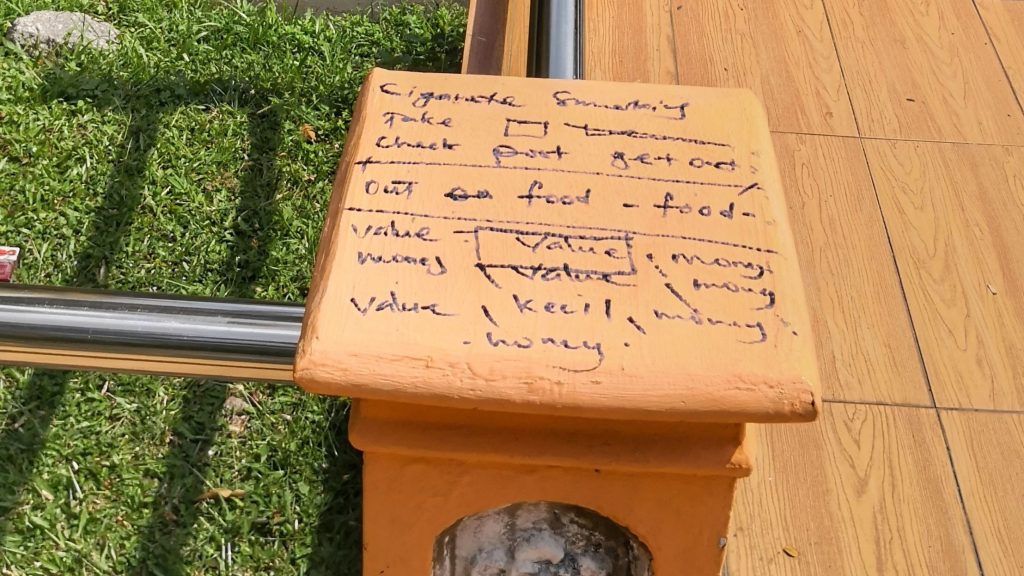 Cigarate Smoking
Take
Check port get out.
Out food - food -
Value Value money
money Value money
Value Kecil money
money